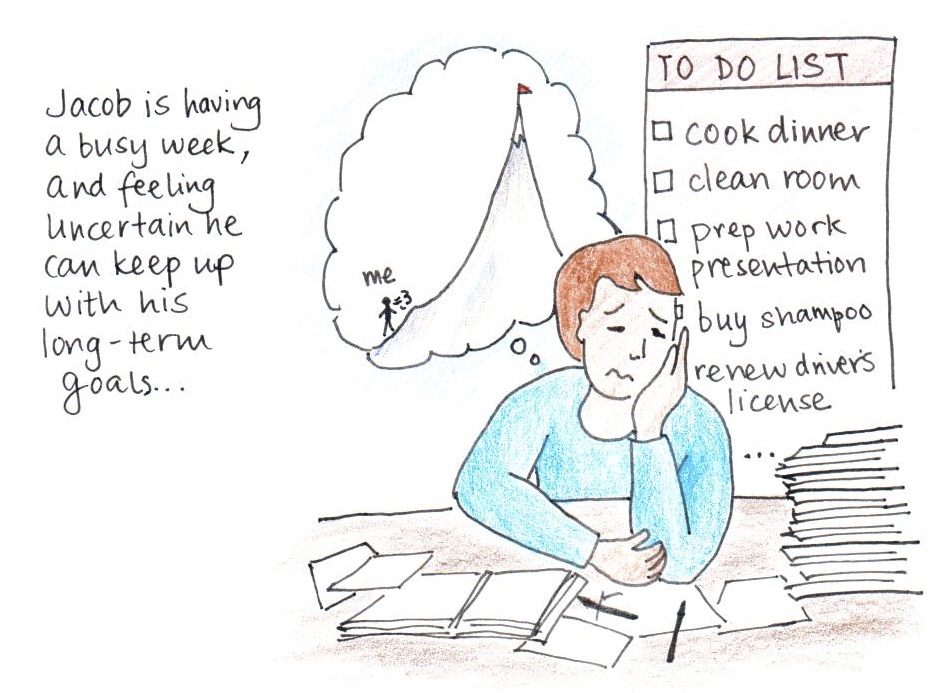 Jacob is having
a busy week,
and feeling
uncertain he
can keep up
with his
long-term
goals...
me
TO DO LIST
cook dinner
clean room
prep work
presentation
buy shampoo
renew driver's
license
...